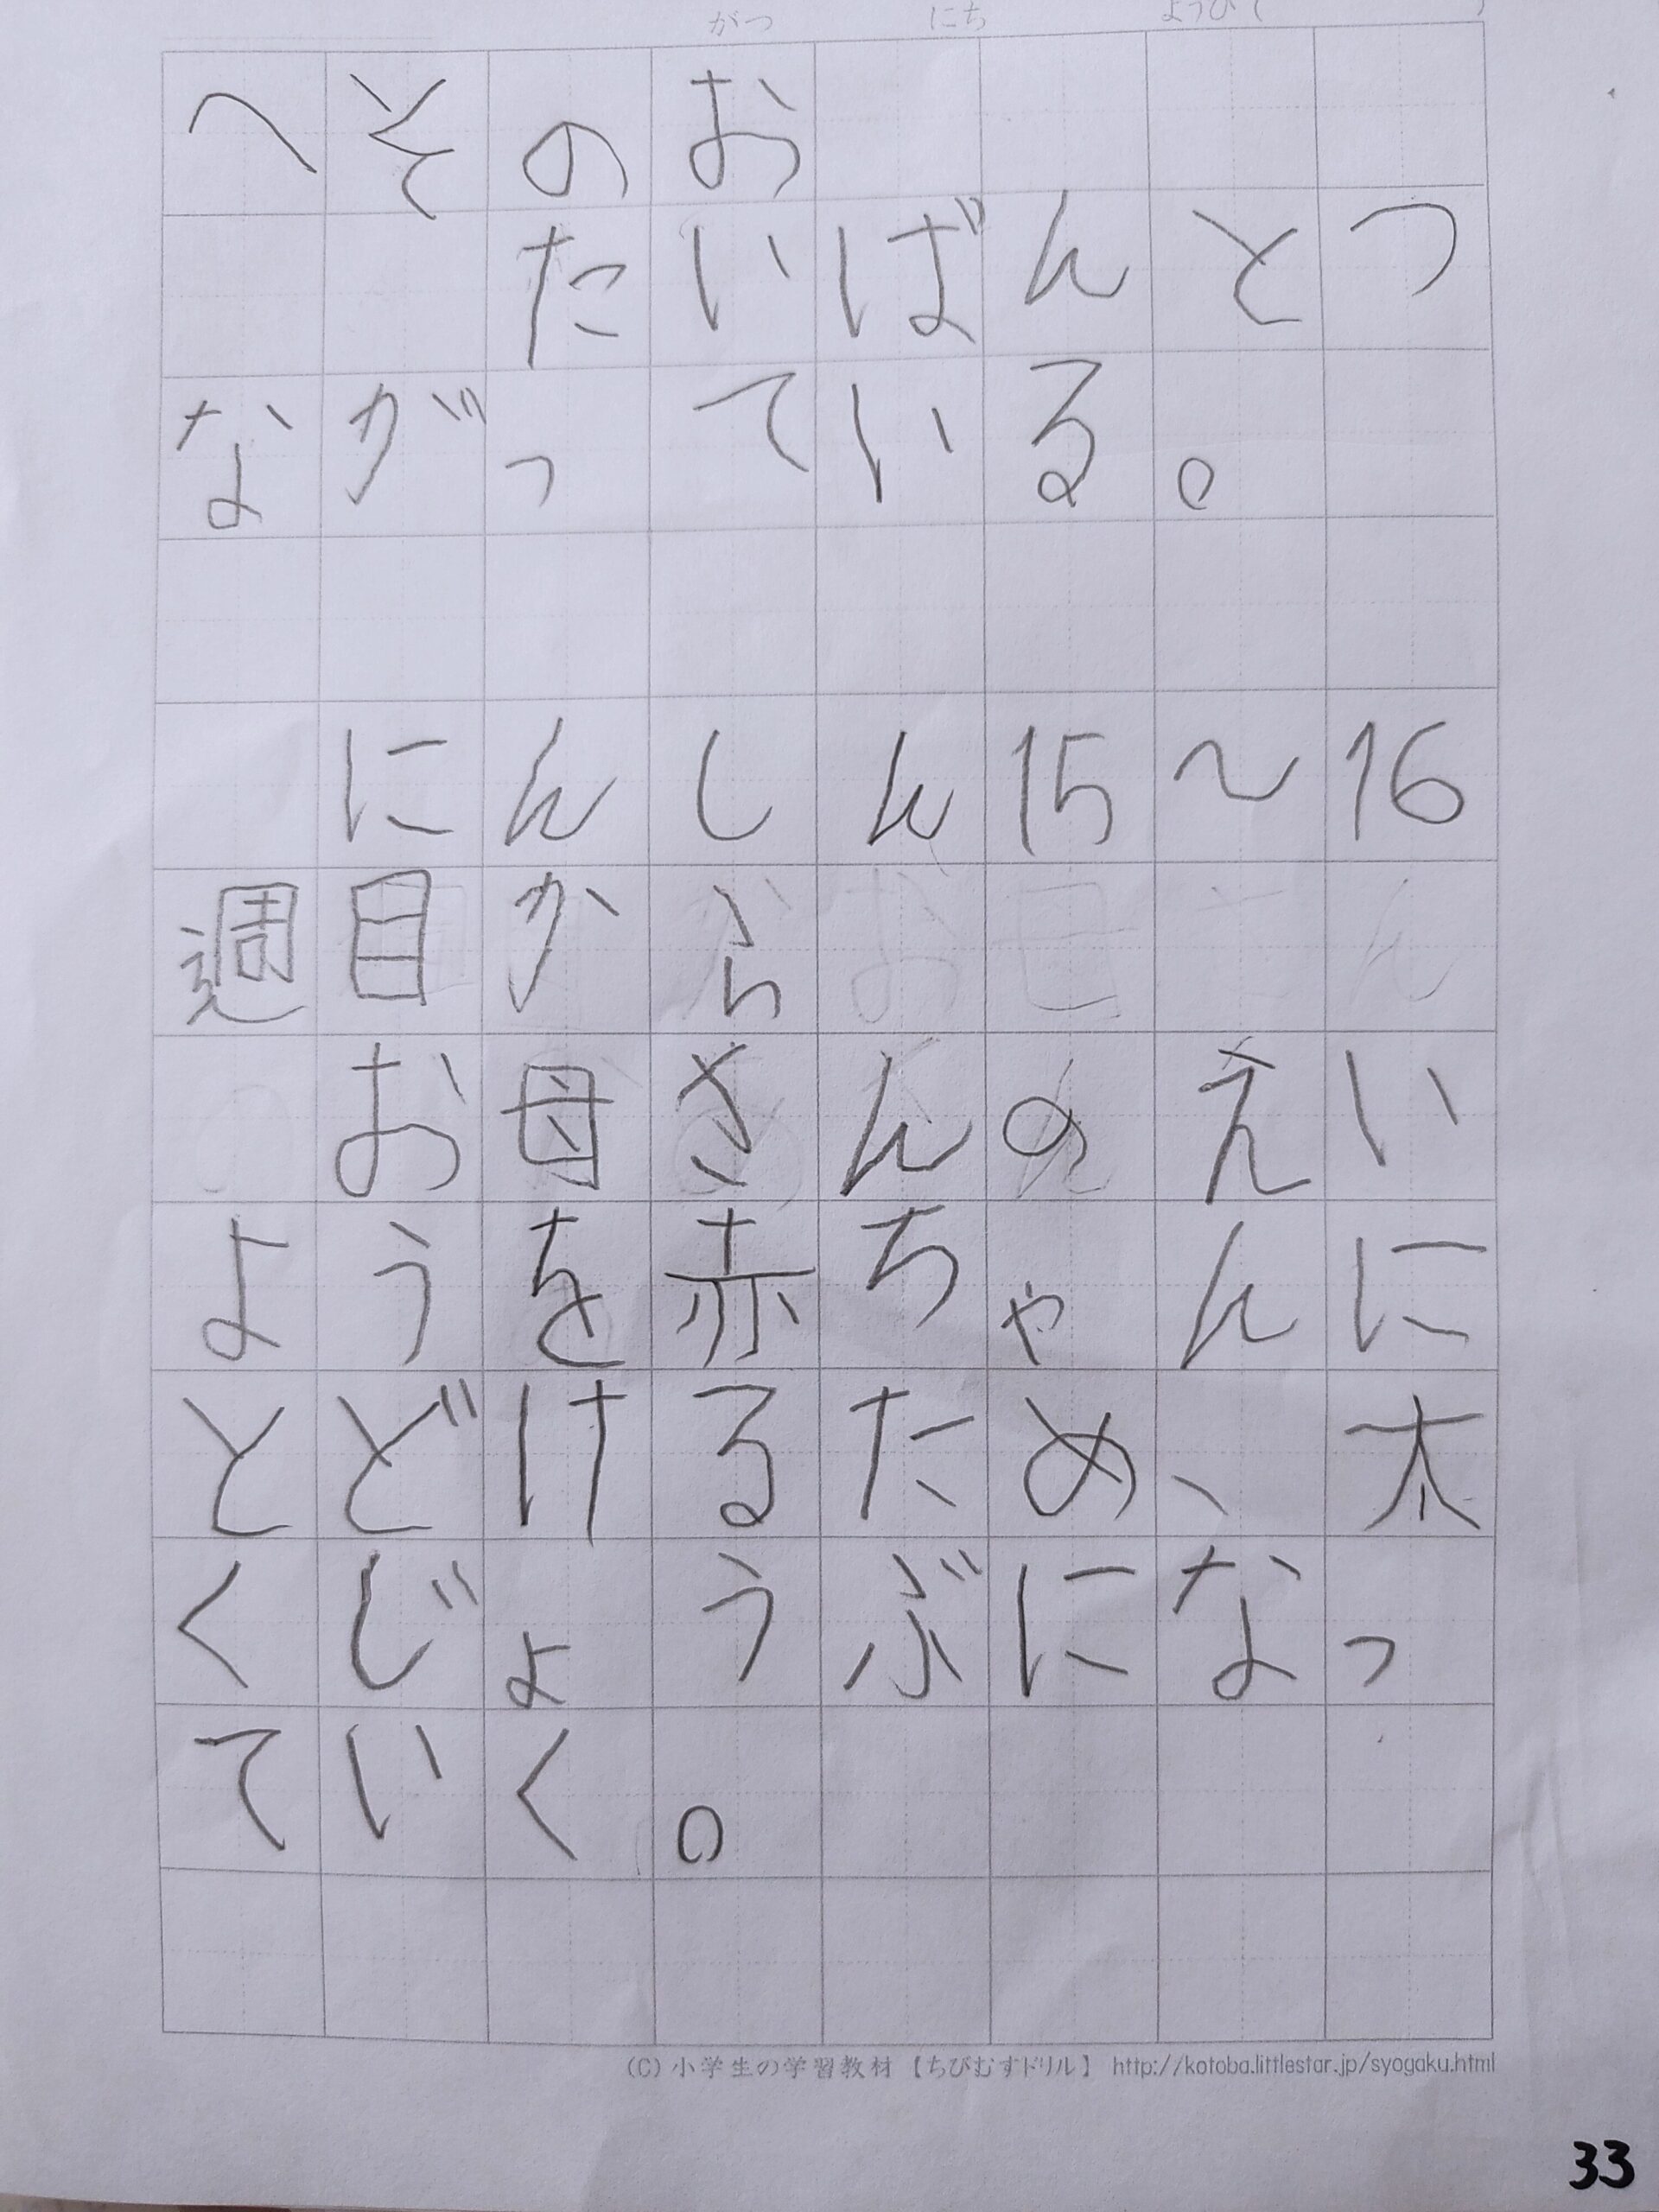 がつ にち ようび(
へそのお
たいばんとつ
ながっている。
にんしん15～16
週目から
お母さんのえい
ようを赤ちゃんに
とどけるため、太
くじょうぶになっ
ていく。
(C) 小学生の学習教材【ちびむすドリル】 http://kotoba.littlestar.jp/syogaku.html
33